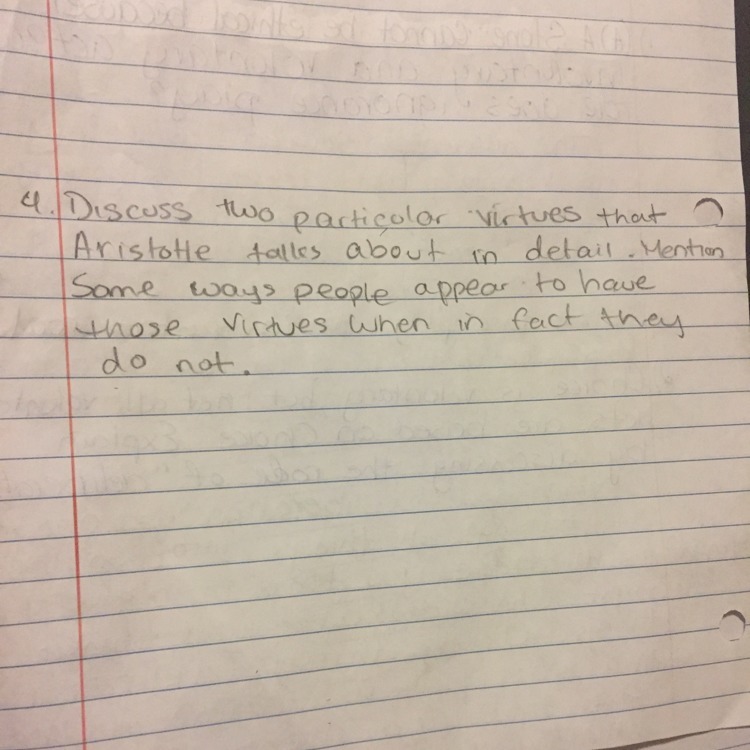 4. Discuss two particular virtues that
Aristotle talks about in detail. Mention
Some ways people appear to have
those virtues when in fact they
do not.